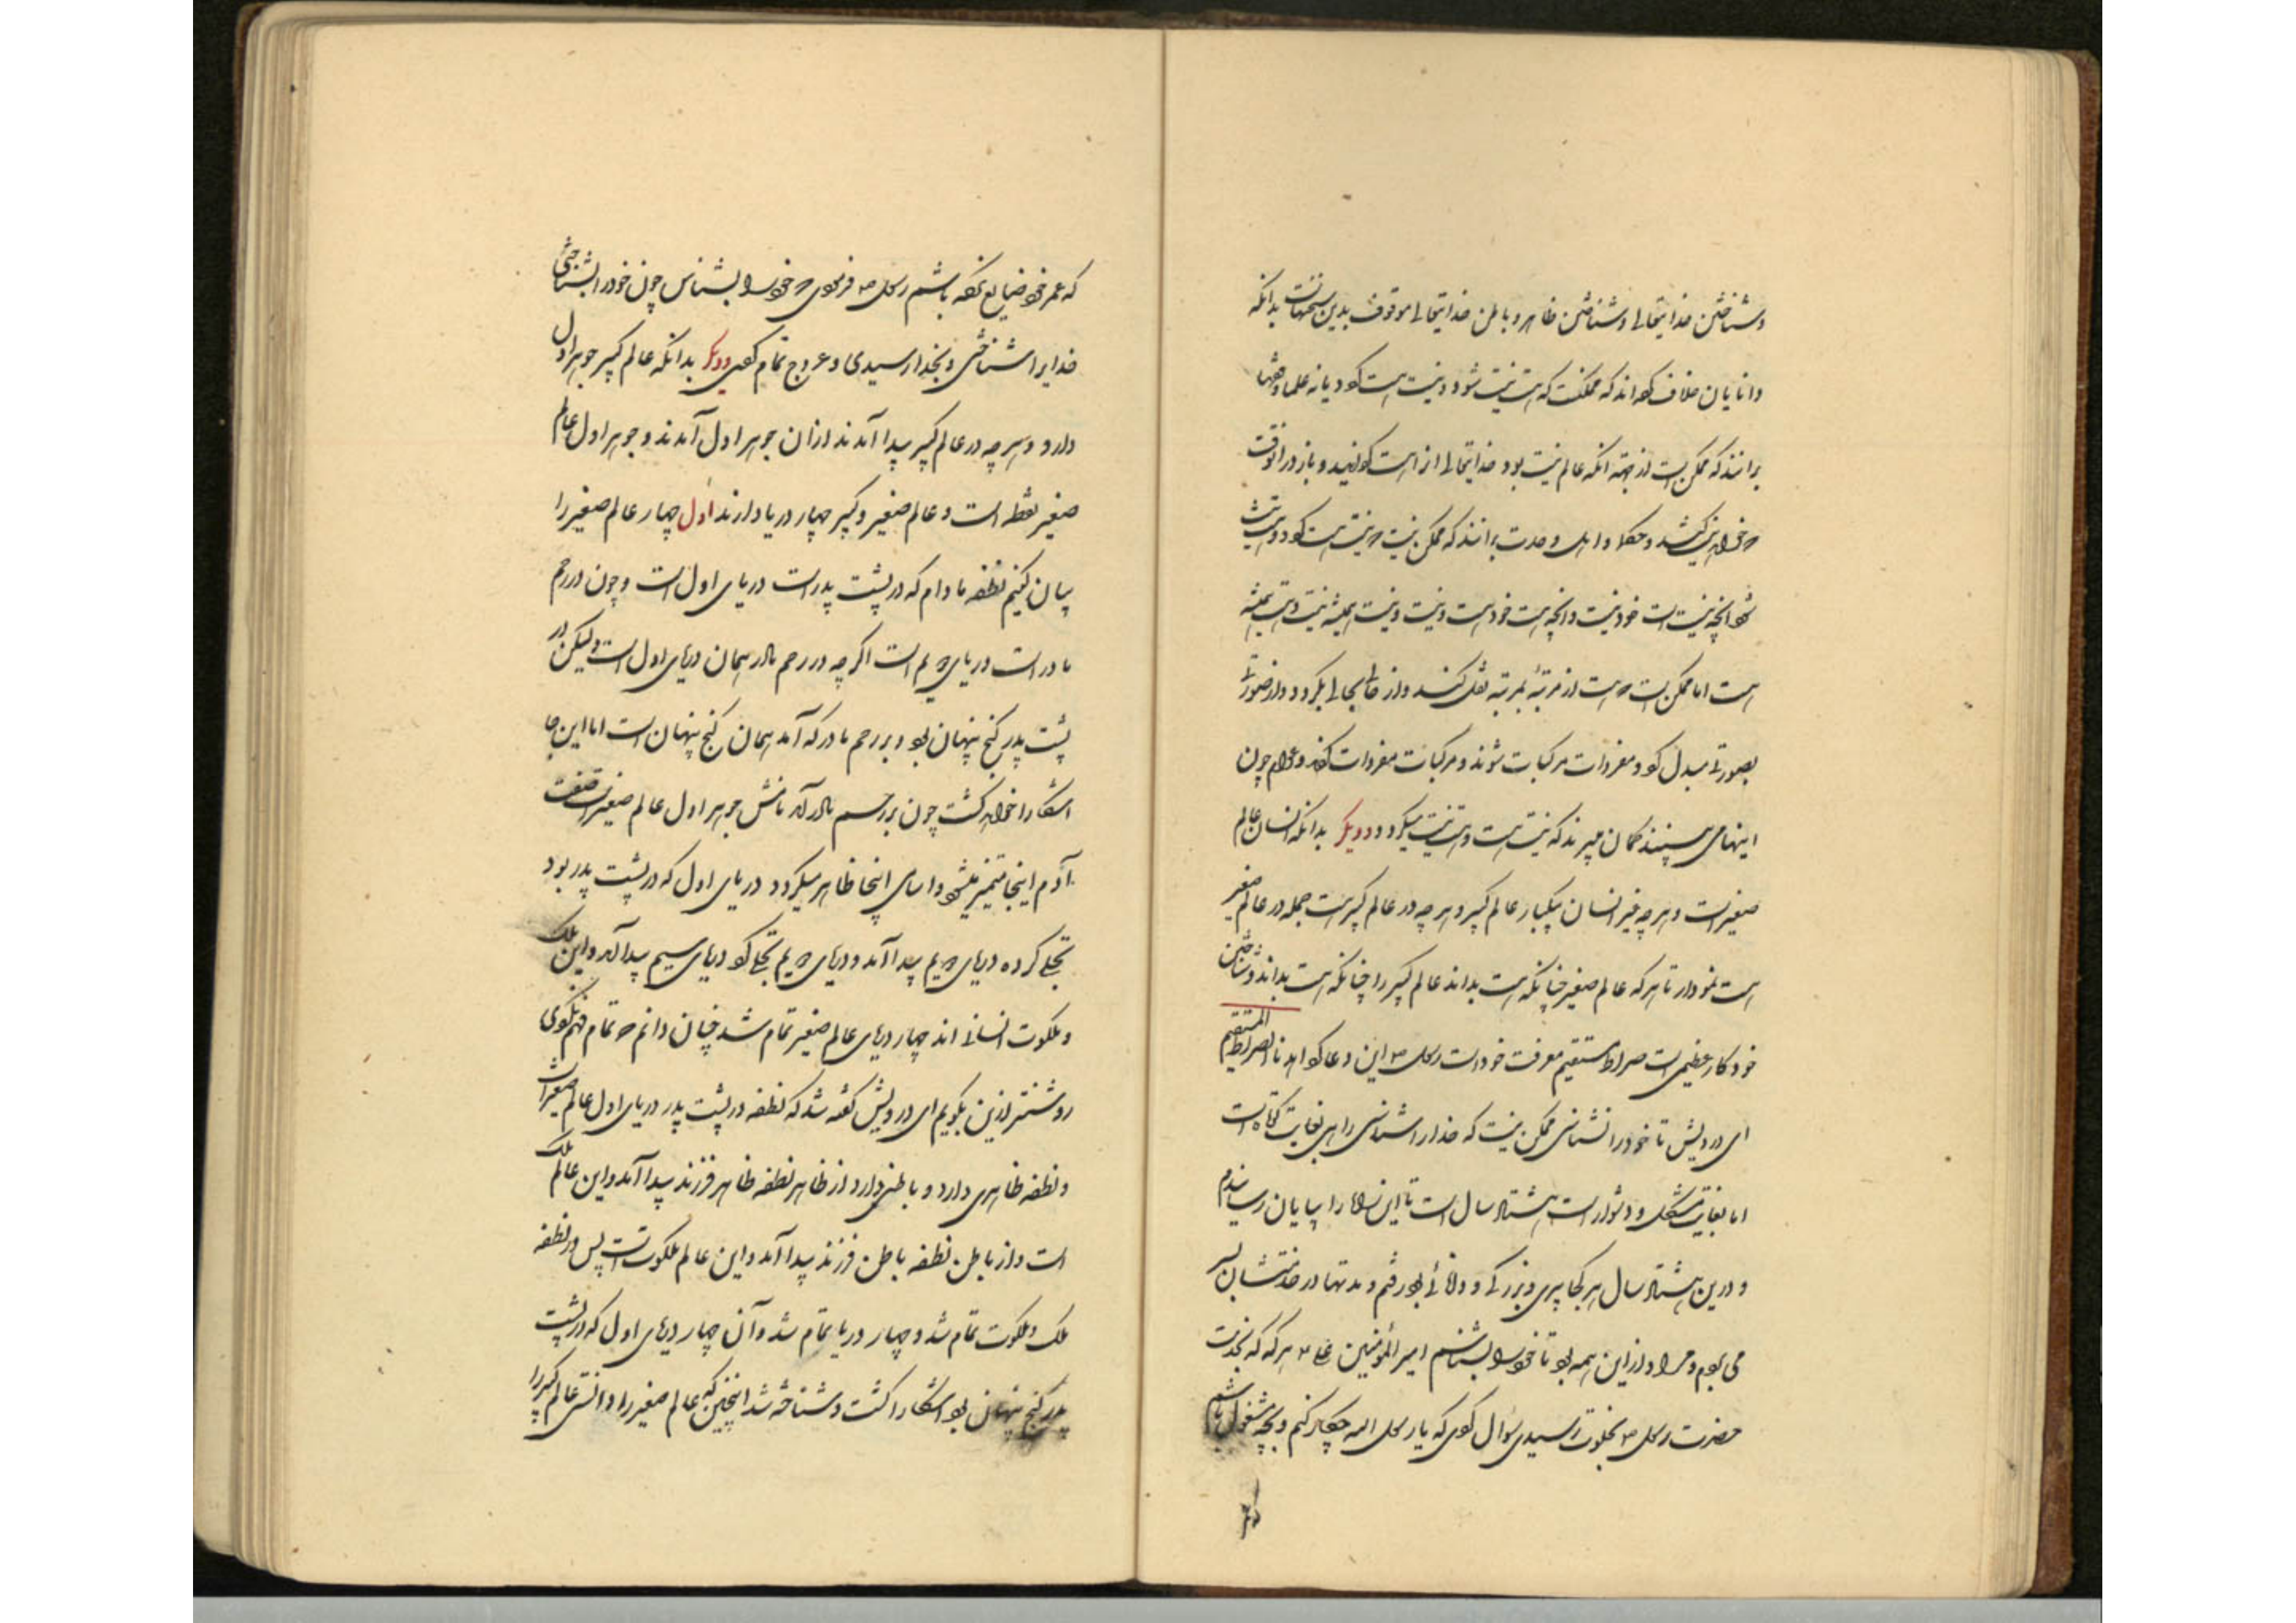 و شناختن خدایتعالی و شناختن ظاهر و باطن خدایتعالی موقوف بدین سخنهاست بدانکه
دانایان خلاف کرده‌اند که ممکنست که هست نیست شود و نیست هست کردد یا نه علما و فقها
برانند که ممکن است از جهة آنکه عالم نیست بود خدایتعالی از هست کردانید و باز در آنوقت
که خواهد نیست کند و حکما و اهل وحدت برانند که ممکن نیست که نیست هست کردد و هست نیست
شود آنچه نیست است خود نیست و آنچه هست خود هست و نیست همیشه نیست و هست همیشه
هست اما ممکن است که هست از مرتبهٔ بمرتبه نقل کنند و از حالی بحالی بکردد و از صورتی
بصورتی مبدل کردد و مفردات مرکبات شوند و مرکبات مفردات کردند و عوام چون
اینها می بینند کمان میبرند که نیست هست و هست نیست میکردد و دیکر بدانکه انسان عالم
صغیر است و هر چه غیر انسان یکبار عالم کبیر و هر چه در عالم کبیر هست جمله در عالم صغیر
هست نمودار تا هر که عالم صغیر چنانکه هست بداند عالم کبیر را چنانکه هست بداند و شناختن
خود کار عظیم است صراط مستقیم معرفت خود است رسول ص این دعا کرد اهدنا الصراط المستقیم
ای درویش تا خود را نشناسی ممکن نیست که خدا را شناسی راهی بغایت کوتاه است
اما بغایت مشکل و دشوار است هشتاد سال است تا این راه را بپایان رسانیدم
و درین هشتاد سال هر کجا پیری و بزرکی و دانائی بود رفتم و مدتها در خدمتشان بسر
می بردم و مراد از این همه بود تا خود را بشناسم امیر المؤمنین علی ع هر که که بخدمت
حضرت رسول ص بخلوت رسیدی سؤال کردی که یا رسول الله چکار کنم و بچه مشغول باشم
که
که عمر خود ضایع نکرده باشم رسول ص فرمودی که خود را بشناس چون خود را بشناختی
خدایرا شناختی و بخدا رسیدی و عروج تمام کردی دیکر بدانکه عالم کبیر جوهر اول
دارد و هر چه در عالم کبیر پیدا آمدند از آن جوهر اول آمدند و جوهر اول عالم
صغیر نطفه است و عالم صغیر و کبیر چهار دریا دارند اول چهار عالم صغیر را
بیان کنیم نطفه مادام که در پشت پدر است دریای اول است و چون در رحم
مادر است دریای دویم است اکر چه در رحم مادر همان دریای اول است ولیکن در
پشت پدر کنج پنهان بود و بر رحم مادر که آمد همان کنج پنهان است اما این جا
آشکارا خواهد کشت چون بر رحم مادر آمد نامش جوهر اول عالم صغیر است صفت
آدم اینجا متمیز میشود و اسامی اینجا ظاهر میکردد دریای اول که در پشت پدر بود
تجلی کرده دریای دویم پیدا آمد و دریای دویم تجلی کرد دریای سیم پیدا آمد و این ملک
و ملکوت انسانی اند چهار دریای عالم صغیر تمام شد چنان دانم که تمام فهم نکردی
روشنتر ازین بکویم ای درویش کفته شد که نطفه در پشت پدر دریای اول عالم صغیر است
و نطفه ظاهری دارد و باطنی دارد از ظاهر نطفه ظاهر فرزند پیدا آمد و این عالم ملک
است و از باطن نطفه باطن فرزند پیدا آمد و این عالم ملکوت است پس در نطفه
ملک و ملکوت تمام شد و چهار دریا تمام شد و آن چهار دریای اول که در پشت
پدر کنج پنهان بود آشکارا کشت و شناخته شد اینچنین که عالم صغیر را دانستی عالم کبیر را